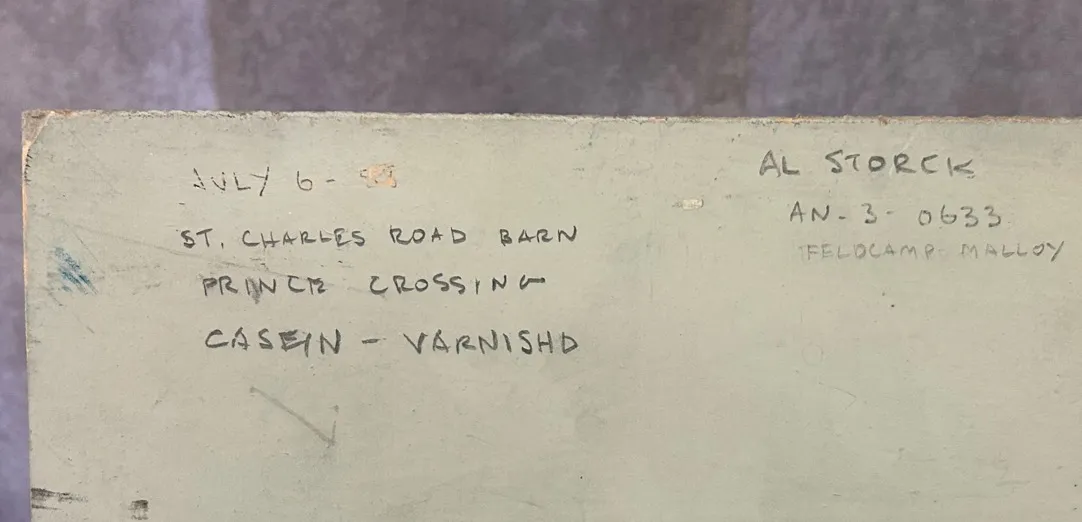 JULY 6 -
ST. CHARLES ROAD BARN
PRINCE CROSSING
CASEIN - VARNISHD
AL STORCK
AN - 3 - 0633
FELDCAMP - MALLOY